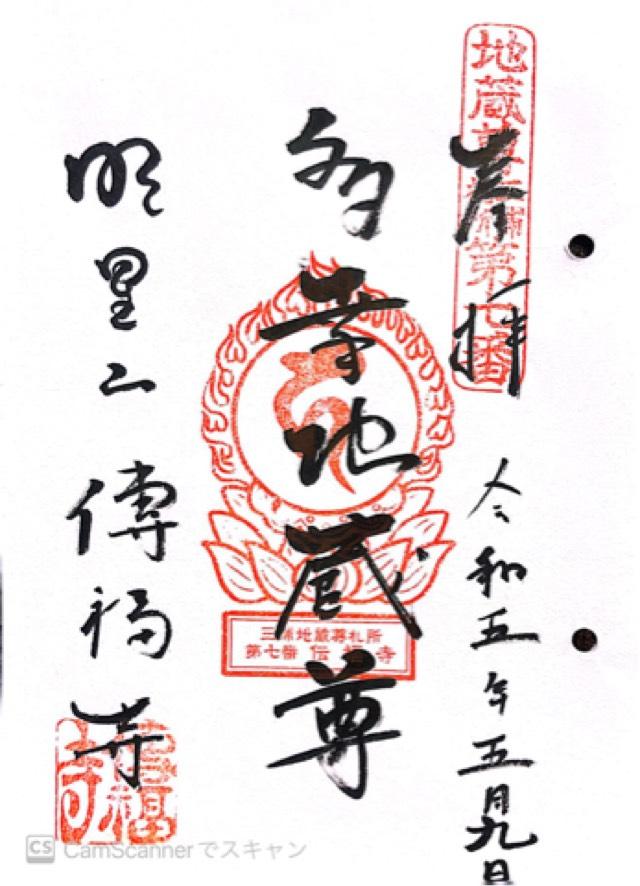 地蔵尊
第七番
奉拝
令和五年五月九日
多幸地蔵尊
三浦地蔵尊札所
第七番 伝福寺
明星山 傳福寺
傳福寺
CS CamScannerでスキャン